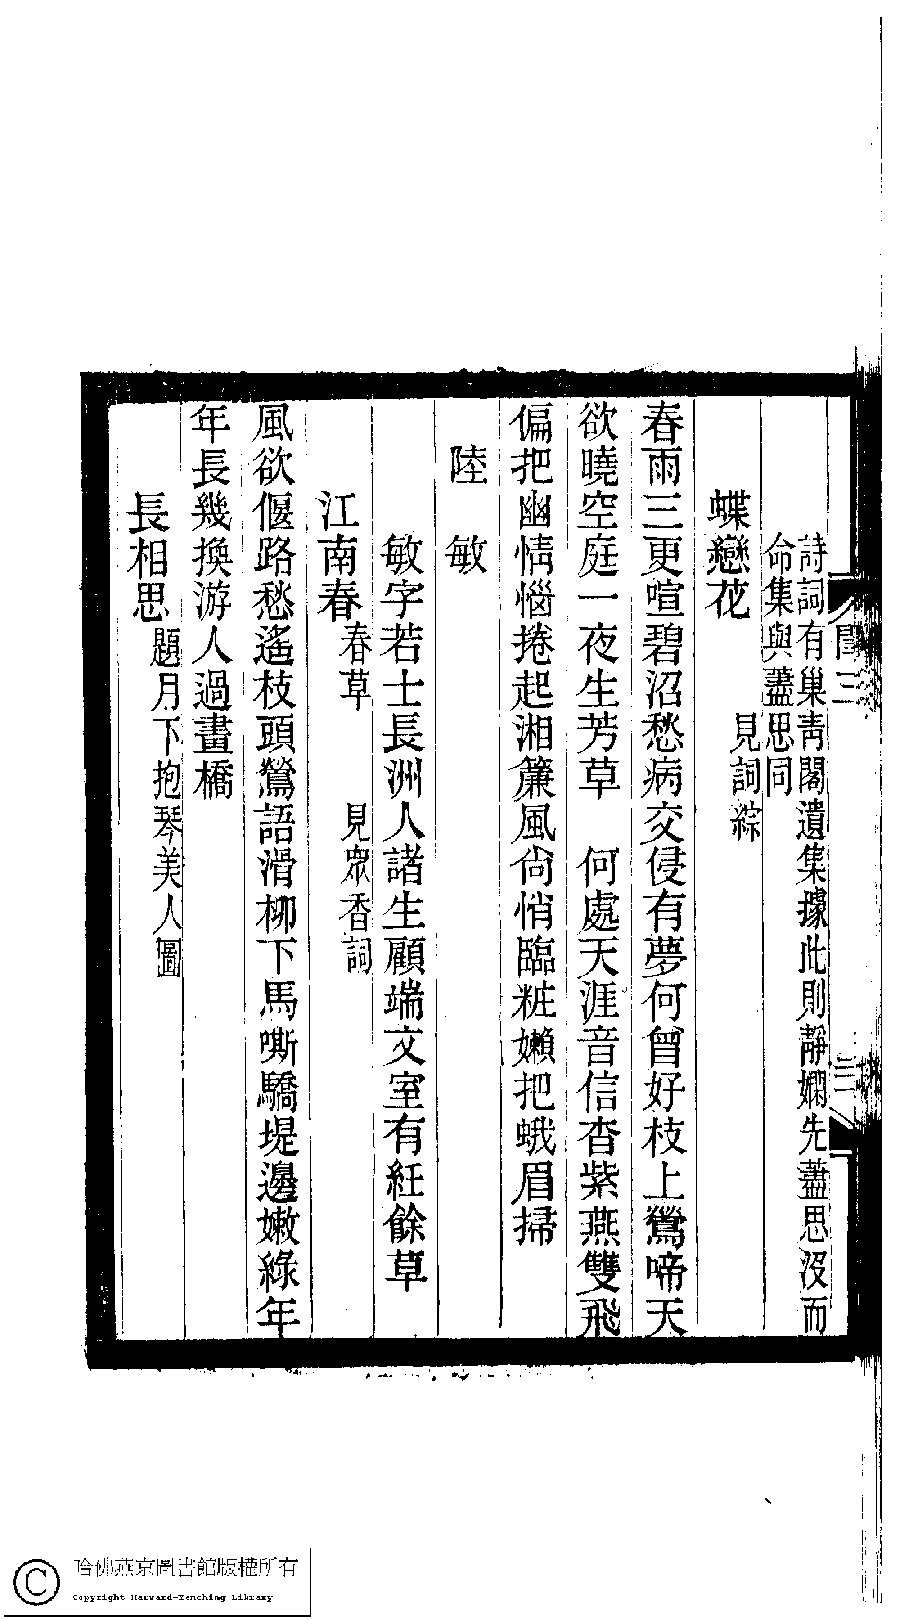 詩詞有巢青閣遺集據此則靜嫻先藎思沒而
命集與藎思同
蝶戀花 見詞綜
春雨三更喧碧沼愁病交侵有夢何曾好枝上鶯啼天
欲曉空庭一夜生芳草 何處天涯音信杳紫燕雙飛
偏把幽情惱捲起湘簾風尚悄臨粧嬾把蛾眉掃
陸敏
敏字若士長洲人諸生顧端文室有紝餘草
江南春 春草 見眾香詞
風欲偃路愁遙枝頭鶯語滑柳下馬嘶驕堤邊嫩綠年
年長幾換游人過畫橋
長相思 題月下抱琴美人圖
哈佛燕京圖書館版權所有
Copyright Harvard-Yenching Library